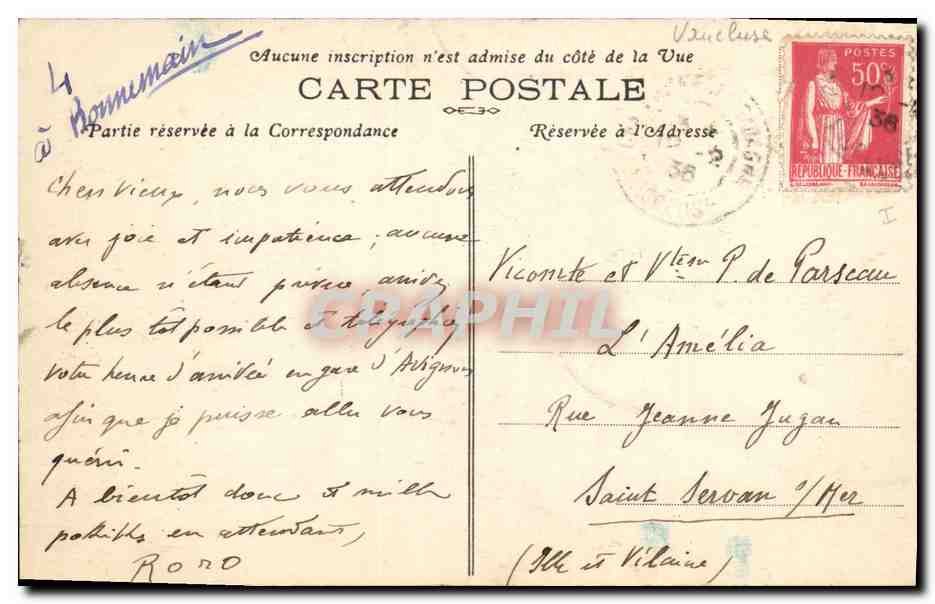 4
à Bonnemain
Vaucluse
Aucune inscription n'est admise du côté de la Vue
CARTE POSTALE
Partie réservée à la Correspondance
Réservée à l'Adresse
POSTES
50c
RÉPUBLIQUE-FRANÇAISE
38
I
Chers Vieux, nous vous attendons
avec joie et impatience, aucune
absence n'étant prévue, arrivez
le plus tôt possible et télégraphiez
votre heure d'arrivée en gare d'Avignon
afin que je puisse aller vous
quérir.
A bientôt donc et mille
en attendant,
RORO
Vicomte et Vtesse P. de Parseau
L'Amélia
Rue Jeanne Jugan
Saint Servan s/Mer
(Ille et Vilaine)
CPAPHIL